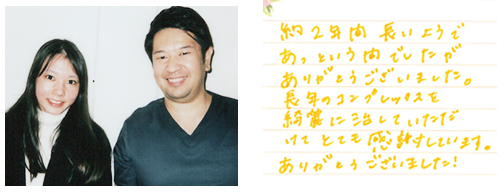 約2年間 長いようで
あっという間でしたが
ありがとうございました。
長年のコンプレックスを
綺麗に治していただ
けて とても感謝しています。
ありがとうございました!